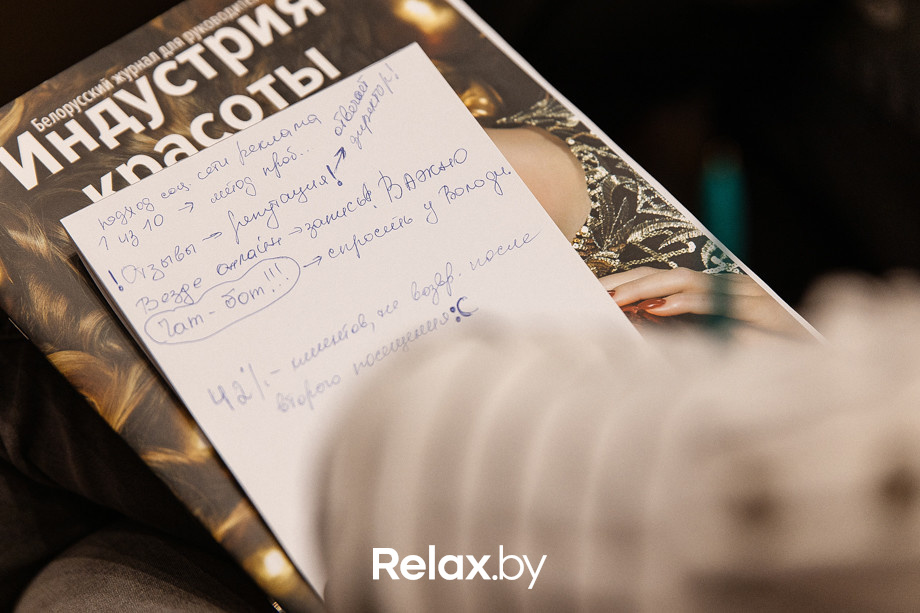 Белорусский журнал для руководите
Индустрия
красоты
подход соц. сети реклама
1 из 10 → метод проб..
отвечает
директор!
! Отзывы → репутация!
Везде онлайн → запись! Важно
Чат-бот!!! → спросить у Володи.
42% - клиентов, не возвр. после
второго посещения :(
Relax.by